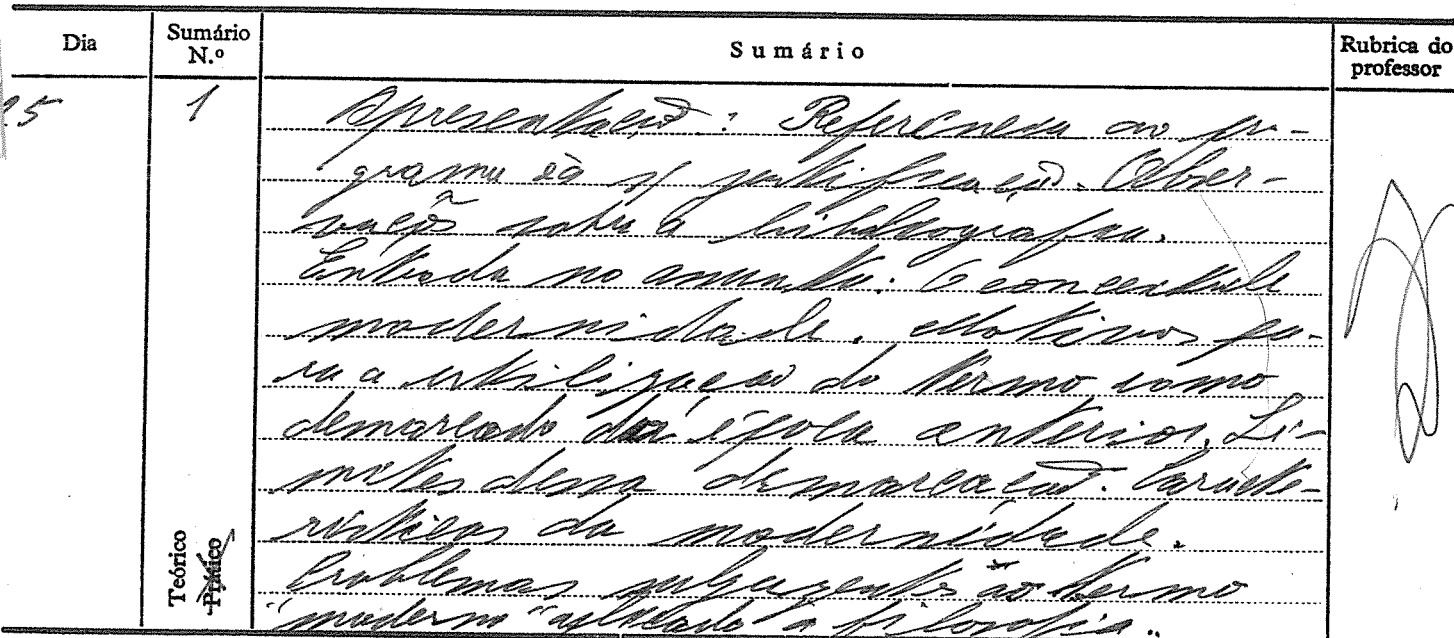 Dia Sumário N.º Sumário Rubrica do professor
25 1 Apresentação: Referência ao pro-
grama e à s/ justificação. Obser-
vações sobre a bibliografia.
Entrada no assunto: O conceito de
modernidade. Motivos pa-
ra a utilização do termo como
demarcado da época anterior. Li-
mites dessa demarcação. Caracte-
rísticas da modernidade.
Problemas subjacentes ao termo
"moderno" aplicado à filosofia.
Teórico
Prático